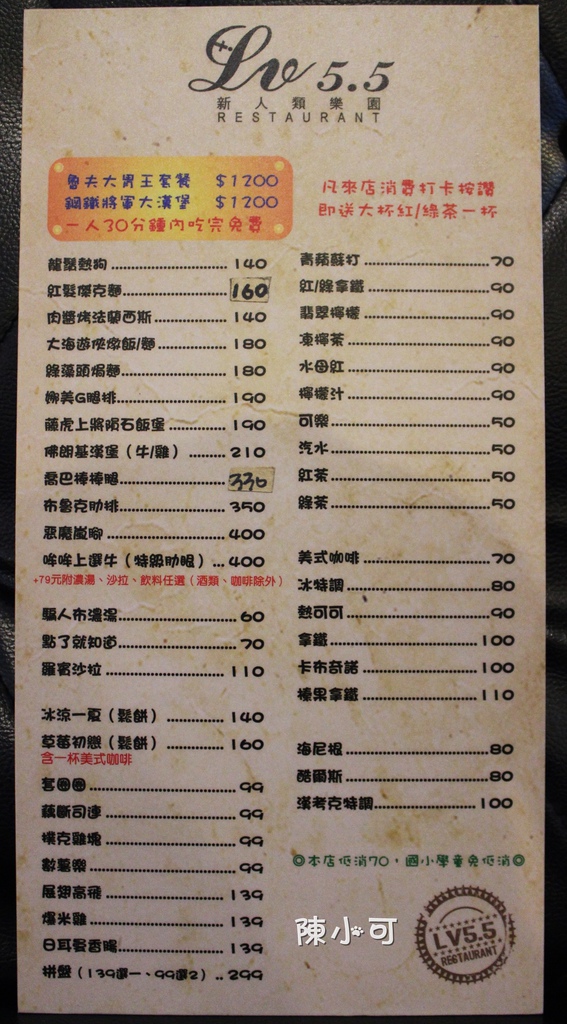 Lv 5.5
新人類樂園
RESTAURANT
魯夫大胃王套餐 $1200
鋼鐵將軍大漢堡 $1200
一人30分鐘內吃完免費
凡來店消費打卡按讚
即送大杯紅/綠茶一杯
龍鬚熱狗 140
紅髮傑克麵 160
肉醬烤法蘭西斯 140
大海遊俠燉飯/麵 180
綠藻頭焗麵 180
娜美G腿排 190
藤虎上將隕石飯堡 190
佛朗基漢堡（牛/雞） 210
喬巴棒棒腿 330
布魯克肋排 350
惡魔嵐腳 400
哞哞上選牛（特級肋眼） 400
+79元附濃湯、沙拉、飲料任選（酒類、咖啡除外）
騙人布濃湯 60
點了就知道 70
羅賓沙拉 110
冰涼一夏（鬆餅） 140
草莓初戀（鬆餅） 160
含一杯美式咖啡
套圈圈 99
藕斷司連 99
撲克雞塊 99
數薯樂 99
展翅高飛 139
爆米雞 139
日耳曼香腸 139
拼盤（139選一、99選2） 299
青蘋蘇打 70
紅/綠拿鐵 90
翡翠檸檬 90
凍檸茶 90
水母紅 90
檸檬汁 90
可樂 50
汽水 50
紅茶 50
綠茶 50
美式咖啡 70
冰特調 80
熱可可 90
拿鐵 100
卡布奇諾 100
榛果拿鐵 110
海尼根 80
酷爾斯 80
漢考克特調 100
◎本店低消70，國小學童免低消◎
陳小可
LV5.5
RESTAURANT